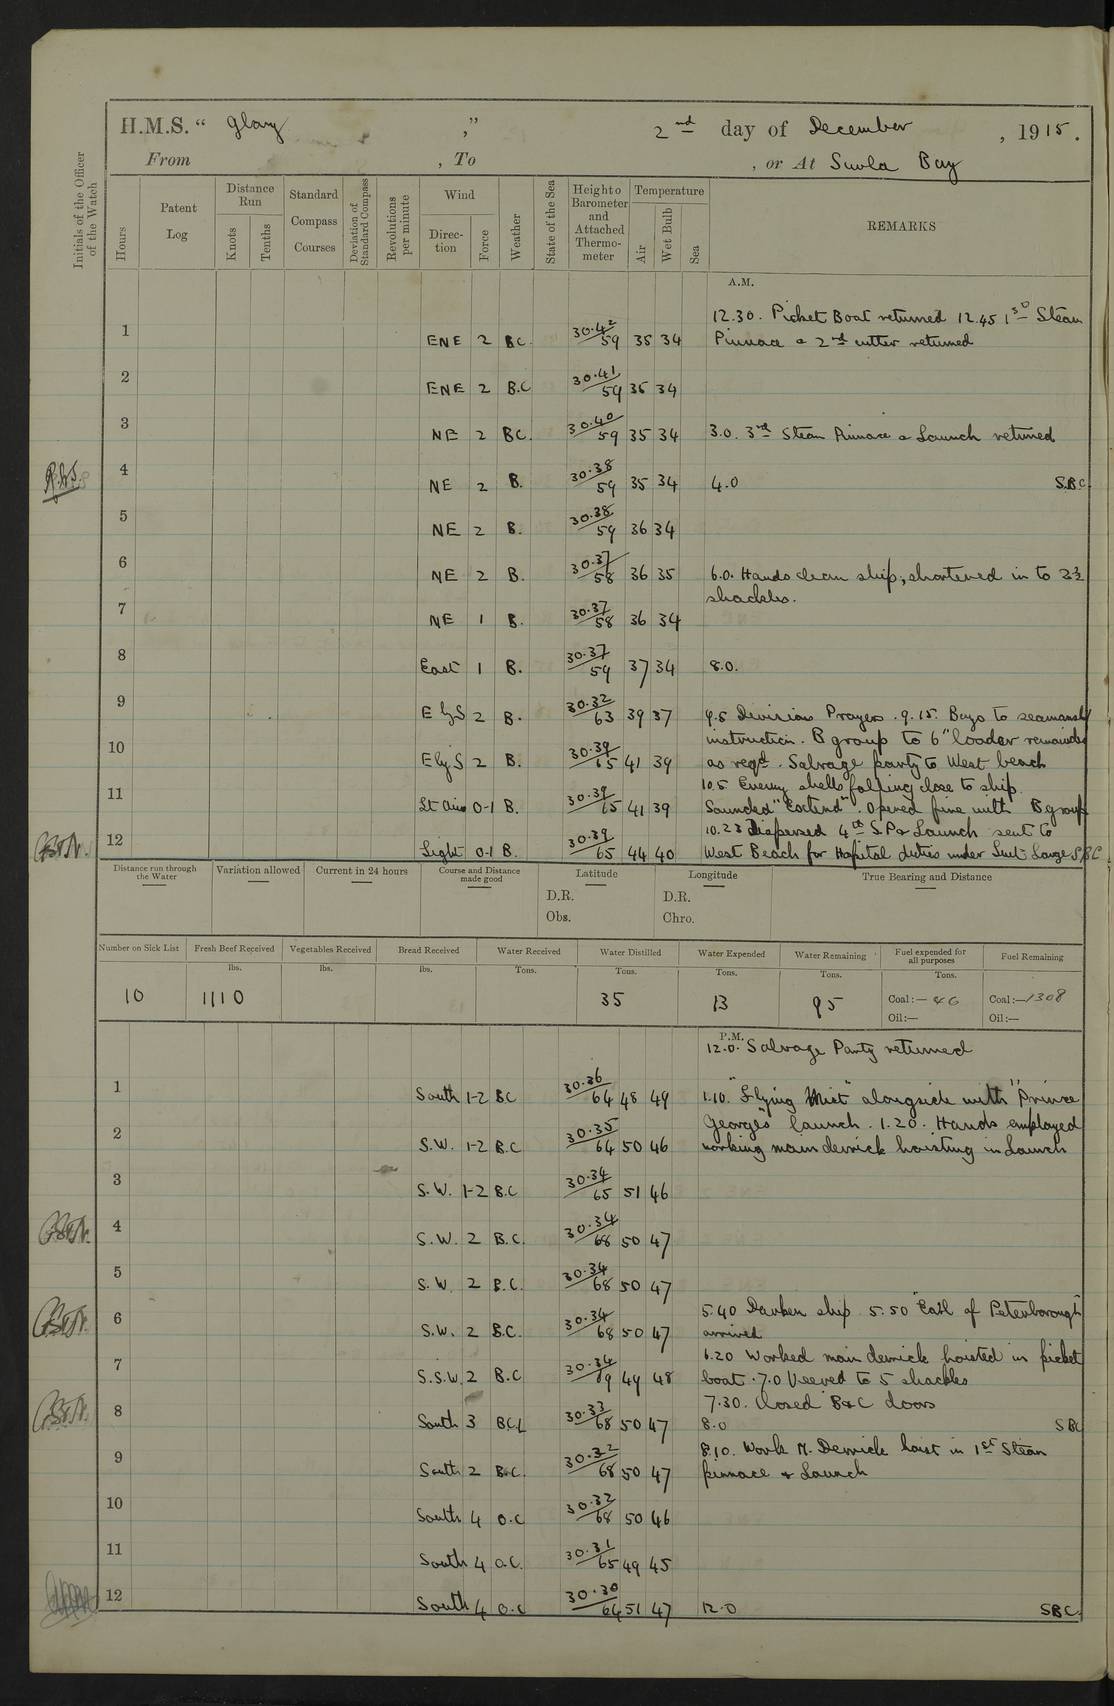 H.M.S. “ Glory ,” 2nd day of December , 1915.
From , To , or At Suvla Bay
Initials of the Officer of the Watch
Hours
Patent Log
Distance Run
Knots
Tenths
Standard Compass Courses
Deviation of Standard Compass
Revolutions per minute
Wind
Direction
Force
Weather
State of the Sea
Height o Barometer and Attached Thermometer
Temperature
Air
Wet Bulb
Sea
REMARKS
A.M.
12.30. Picket Boat returned 12.45 1st Steam
1 ENE 2 BC. 30.42/59 35 34 Pinnace & 2nd cutter returned
2 ENE 2 B.C 30.41/59 35 34
3 NE 2 BC. 30.40/59 35 34 3.0. 3rd Steam Pinnace & Launch returned
4 NE 2 B. 30.38/59 35 34 4.0 S.B.C.
5 NE 2 B. 30.38/59 36 34
6 NE 2 B. 30.37/58 36 35 6.0. Hands clean ship, shortened in to 2½
shackles.
7 NE 1 B. 30.37/58 36 34
8 East 1 B. 30.37/59 37 34 8.0.
9 E by S 2 B. 30.32/63 39 37 9.5 Divisions Prayers. 9.15. Boys to seamanship
instruction. B group to 6" loader remainder
10 E by S 2 B. 30.39/65 41 39 as reqd. Salvage party to West beach
10.5 Enemy shells falling close to ship.
11 Lt Airs 0-1 B. 30.39/65 41 39 Sounded "Extend". Opened fire with B group
10.23 Dispersed 4th S.P & Launch sent to
12 Light 0-1 B. 30.39/65 44 40 West Beach for Hospital duties under Lieut Lange SBC
Distance run through the Water
Variation allowed
Current in 24 hours
Course and Distance made good
Latitude
D.R.
Obs.
Longitude
D.R.
Chro.
True Bearing and Distance
Number on Sick List
Fresh Beef Received
Vegetables Received
Bread Received
Water Received
Water Distilled
Water Expended
Water Remaining
Fuel expended for all purposes
Fuel Remaining
lbs. lbs. lbs. Tons. Tons. Tons. Tons. Tons.
10 1110 35 13 95 Coal:— 46 Coal:—1308
Oil:— Oil:—
P.M.
12.0. Salvage Party returned
1 South 1-2 BC 30.36/64 48 49 1.10. "Flying Mist" alongside with "Prince
George's" launch. 1.20. Hands employed
2 S.W. 1-2 B.C 30.35/64 50 46 working main derrick hoisting in Launch
3 S.W. 1-2 B.C 30.34/65 51 46
4 S.W. 2 B.C. 30.34/68 50 47
5 S.W. 2 B.C. 30.34/68 50 47
5.40 Darken ship 5.50 "Earl of Peterborough"
6 S.W. 2 B.C. 30.34/68 50 47 arrived
6.20 Worked main derrick hoisted in picket
7 S.S.W. 2 B.C 30.34/69 49 48 boat. 7.0 Veered to 5 shackles
7.30. Closed B & C doors
8 South 3 B.C.L 30.33/68 50 47 8.0 SBC
8.10. Work M. Derrick hoist in 1st Steam
9 South 2 B.C. 30.32/68 50 47 pinnace & Launch
10 South 4 O.C 30.32/68 50 46
11 South 4 O.C. 30.31/65 49 45
12 South 4 O.C 30.30/64 51 47 12.0 SBC.